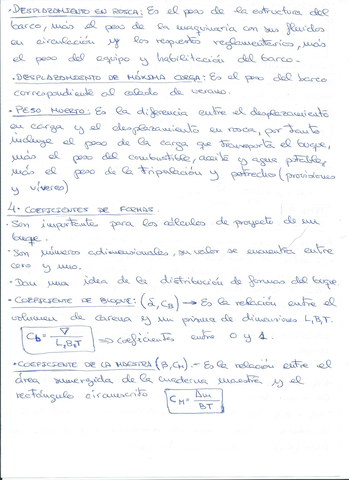 · DESPLAZAMIENTO EN ROSCA: Es el peso de la estructura del
barco, más el peso de la maquinaria con sus fluidos
en circulación y los respetos reglamentarios, más
el peso del equipo y habilitación del barco.
· DESPLAZAMIENTO DE MÁXIMA CARGA: Es el peso del barco
correspondiente al calado de verano.
· PESO MUERTO: Es la diferencia entre el desplazamiento
en carga y el desplazamiento en rosca, por tanto
incluye el peso de la carga que transporta el buque,
más el peso del combustible, aceite y agua potable,
más el peso de la tripulación y pertrechos (provisiones
y víveres)
4. COEFICIENTES DE FORMAS.
· Son importantes para los cálculos de proyecto de un
buque.
· Son números adimensionales, su valor se encuentra entre
cero y uno.
· Dan una idea de la distribución de formas del buque.
· COEFICIENTE DE BLOQUE: (δ, CB) → Es la relación entre el
volumen de carena y un prisma de dimensiones L,B,T.
Cb = ∇ / L,B,T ⇒ coeficientes entre 0 y 1.
· COEFICIENTE DE LA MAESTRA (β, CM).- Es la relación entre el
área sumergida de la cuaderna maestra y el
rectángulo circunscrito CM = Am / BT